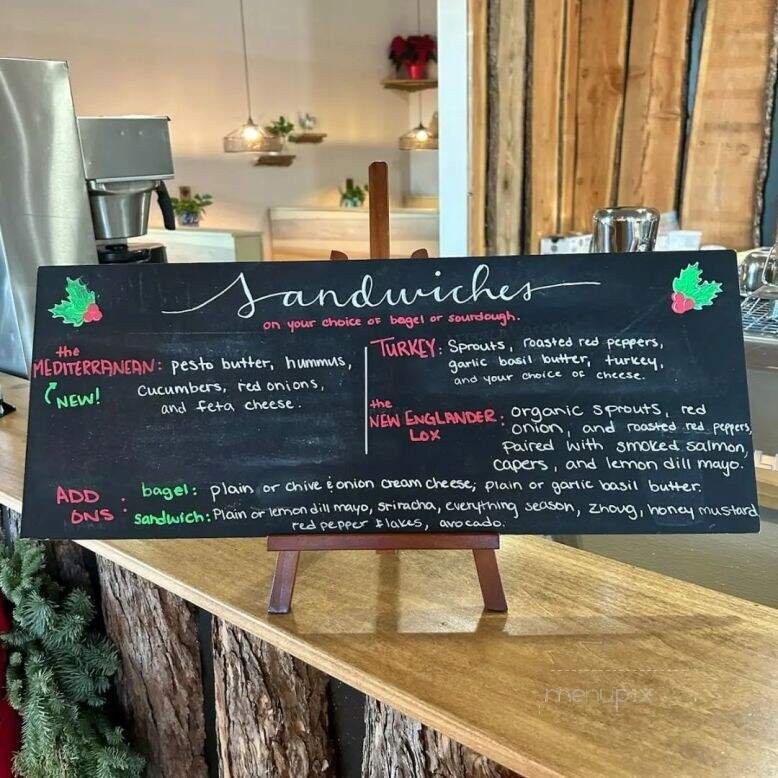 Sandwiches
on your choice of bagel or sourdough.
the
MEDITERRANEAN: pesto butter, hummus,
cucumbers, red onions,
and feta cheese.
NEW!
TURKEY: Sprouts, roasted red peppers,
garlic basil butter, turkey,
and your choice of cheese.
the
NEW ENGLANDER LOX: organic sprouts, red
onion, and roasted red peppers,
paired with smoked salmon,
capers, and lemon dill mayo.
ADD ONS:
bagel: plain or chive & onion cream cheese; plain or garlic basil butter.
sandwich: Plain or lemon dill mayo, sriracha, everything season, zhoug, honey mustard
red pepper flakes, avocado.
menupix